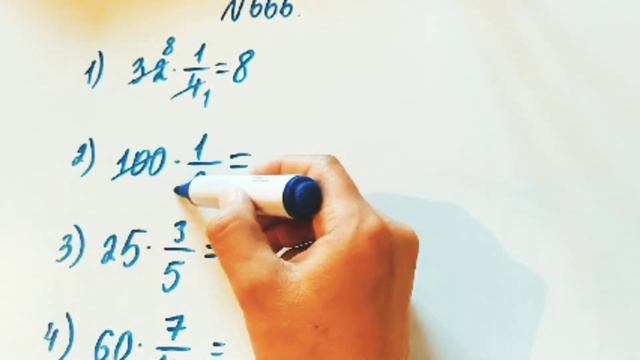 N 666.
1) 32 8 · 1/4 1 = 8
2) 100 · 1/
3) 25 · 3/5 =
4) 60 · 7/ =